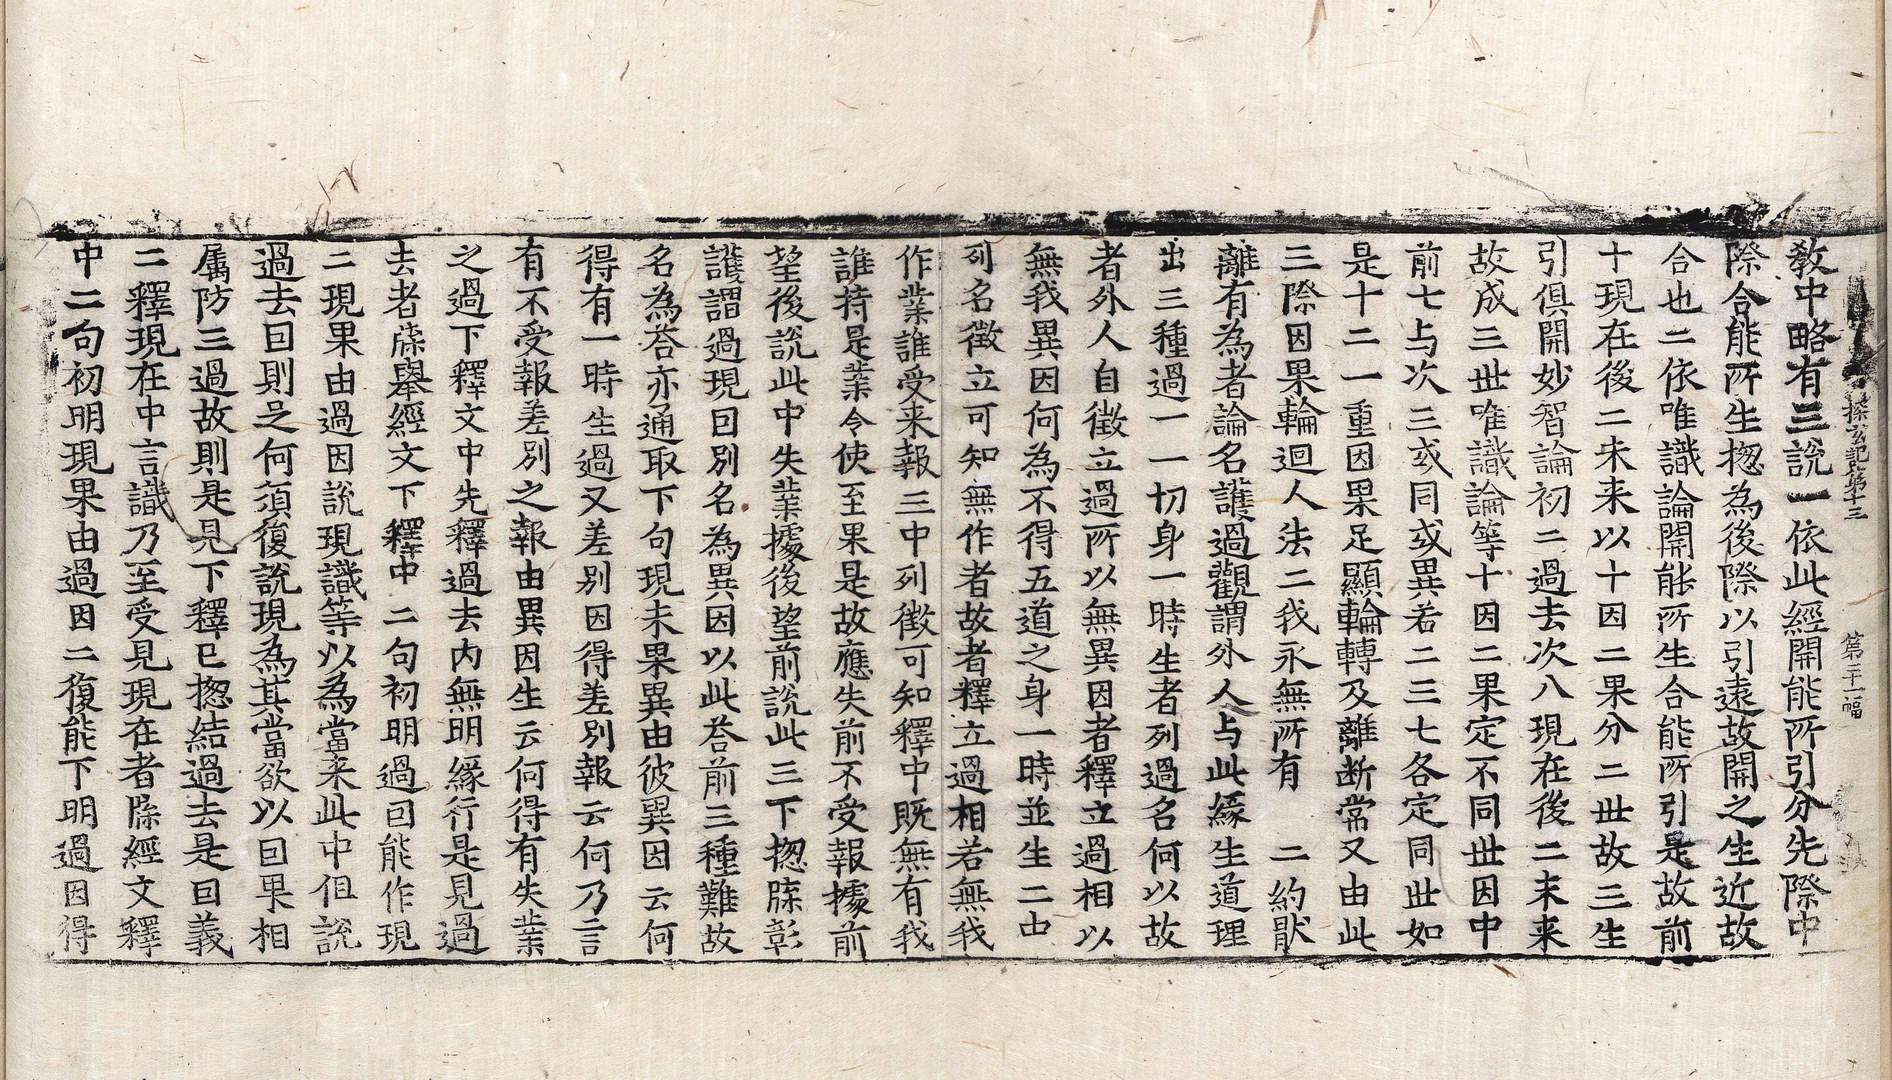 探玄記第十三 第三十一幅
教中略有三說一依此經開能所引分先際中
際合能所生揔為後際以引遠故開之生近故
合也二依唯識論開能所生合能所引是故前
十現在後二未来以十因二果分二世故三生
引俱開妙智論初二過去次八現在後二未来
故成三世唯識論等十因二果定不同世因中
前七与次三或同或異若二三七各定同世如
是十二一重因果足顯輪轉及離断常又由此
三際因果輪迴人法二我永無所有 二約猒
離有為者論名護過觀謂外人与此緣生道理
出三種過一一切身一時生者列過名何以故
者外人自徵立過所以無異因者釋立過相以
無我異因何為不得五道之身一時並生二由
列名徵立可知無作者故者釋立過相若無我
作業誰受来報三中列徵可知釋中既無有我
誰持是業令使至果是故應失前不受報據前
望後說此中失業據後望前說此三下揔牒彰
護謂過現因別名為異因以此荅前三種難故
名為荅亦通取下句現未果異由彼異因云何
得有一時生過又差別因得差別報云何乃言
有不受報差別之報由異因生云何得有失業
之過下釋文中先釋過去内無明緣行是見過
去者牒舉經文下釋中二句初明過因能作現
二現果由過因說現識等以為當来此中但說
過去因則足何須復說現為其當欲以因果相
属防三過故則是見下釋已揔結過去是因義
二釋現在中言識乃至受見現在者牒經文釋
中二句初明現果由過因二復能下明過因得